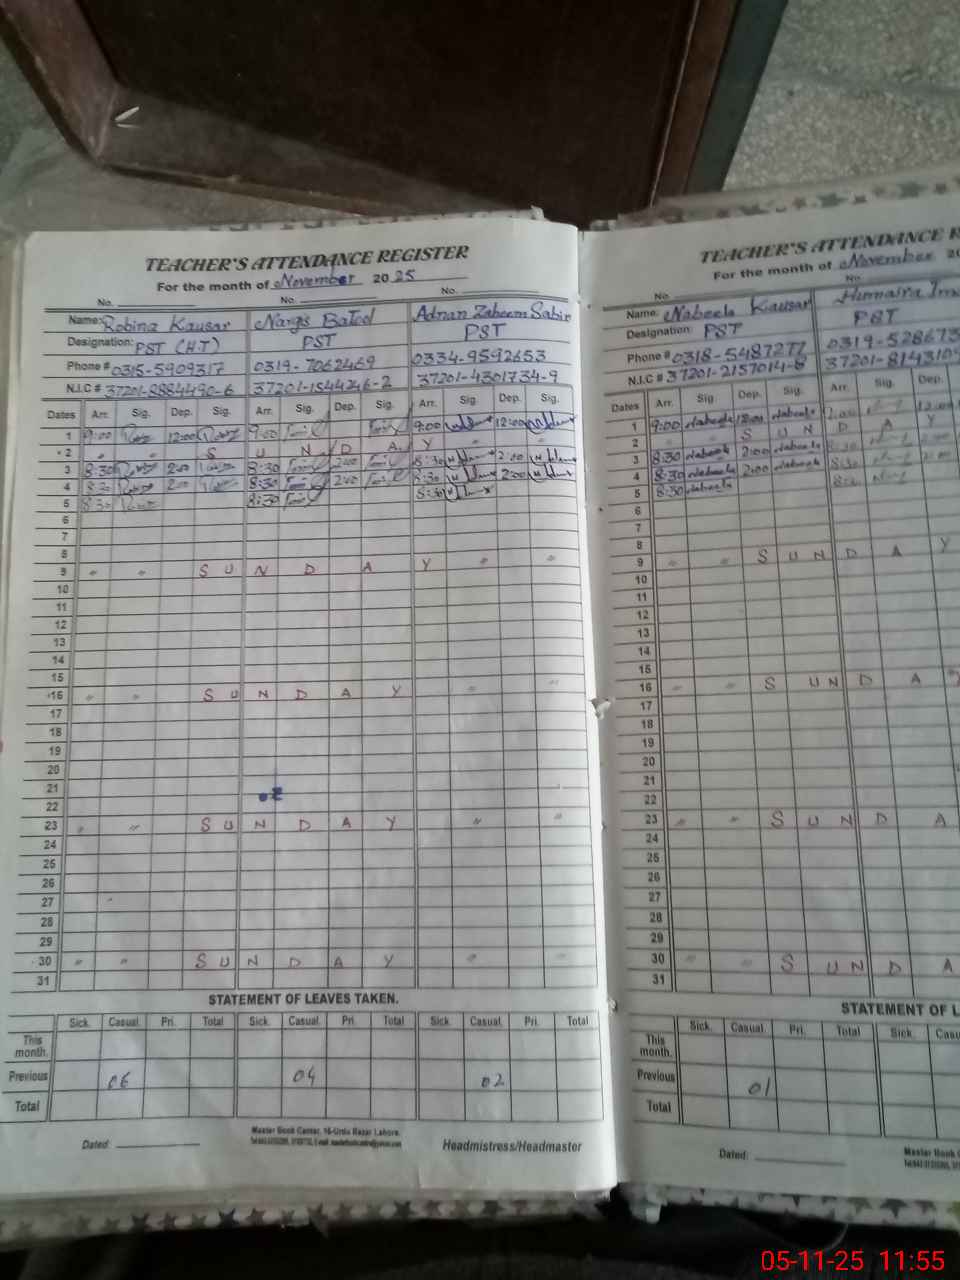 TEACHER'S ATTENDANCE REGISTER
For the month of November 2025
No. No. No.
Name: Robina Kausar Nargis Batool Adnan Zaheem Sabir
Designation: PST (H.T) PST PST
Phone # 0315-5909317 0319-7062469 0334-9592653
N.I.C # 37201-8884490-6 37201-1544246-2 37201-4301734-9
Dates Arr. Sig. Dep. Sig. Arr. Sig. Dep. Sig. Arr. Sig. Dep. Sig.
1 9:00 12:00 9:00 9:00 12:00
2 " " S U N D A Y " "
3 8:30 2:00 8:30 2:00 8:30 2:00
4 8:30 2:00 8:30 2:00 8:30 2:00
5 8:30 8:30 8:30
6
7
8
9 " " S U N D A Y " "
10
11
12
13
14
15
16 " " S U N D A Y " "
17
18
19
20
21
22
23 " " S U N D A Y " "
24
25
26
27
28
29
30 " " S U N D A Y " "
31
STATEMENT OF LEAVES TAKEN.
Sick. Casual. Pri. Total Sick. Casual. Pri. Total Sick. Casual. Pri. Total
This month.
Previous 06 04 02
Total
Master Book Center, 16-Urdu Bazar Lahore.
Dated: Headmistress/Headmaster
TEACHER'S ATTENDANCE R
For the month of November 20
No. No.
Name: Nabeela Kausar Humaira
Designation: PST PST
Phone # 0318-5487277 0319-528673
N.I.C # 37201-2157014-8 37201-8143105
Dates Arr. Sig. Dep. Sig. Arr. Sig. Dep.
1 9:00 Nabeela 12:00 Nabeela 12:00
2 " " S U N D A Y
3 8:30 Nabeela 2:00 Nabeela 8:30 2:00
4 8:30 Nabeela 2:00 Nabeela 8:30 2:00
5 8:30 Nabeela
6
7
8
9 " " S U N D A Y
10
11
12
13
14
15
16 " " S U N D A Y
17
18
19
20
21
22
23 " " S U N D A
24
25
26
27
28
29
30 " " S U N D A
31
STATEMENT OF L
Sick. Casual. Pri. Total Sick. Casu
This month.
Previous 01
Total
Master Book C
Dated:
05-11-25 11:55